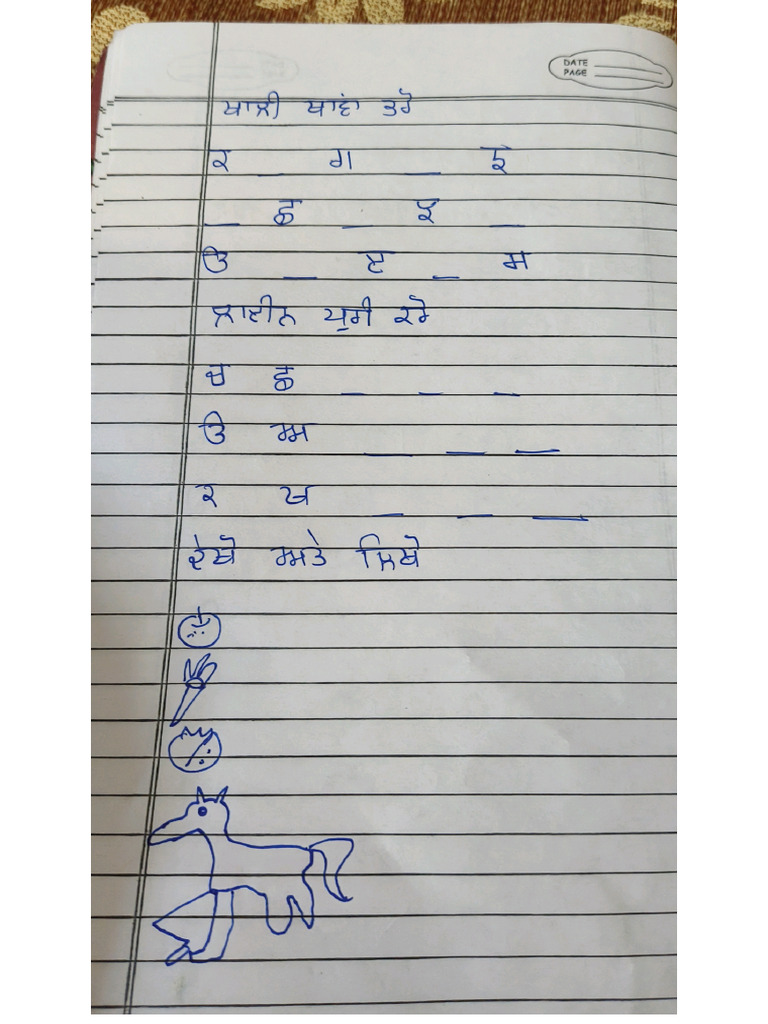 DATE
PAGE
ਖਾਲੀ ਥਾਵਾਂ ਭਰੋ
ਕ _ ਗ _ ਙ
_ ਛ _ ਝ _
ੳ _ ੲ _ ਸ
ਲਾਈਨ ਪੂਰੀ ਕਰੋ
ਚ ਛ _ _ _
ੳ ਅ _ _ _
ਕ ਖ _ _ _
ਦੇਖੋ ਅਤੇ ਲਿਖੋ